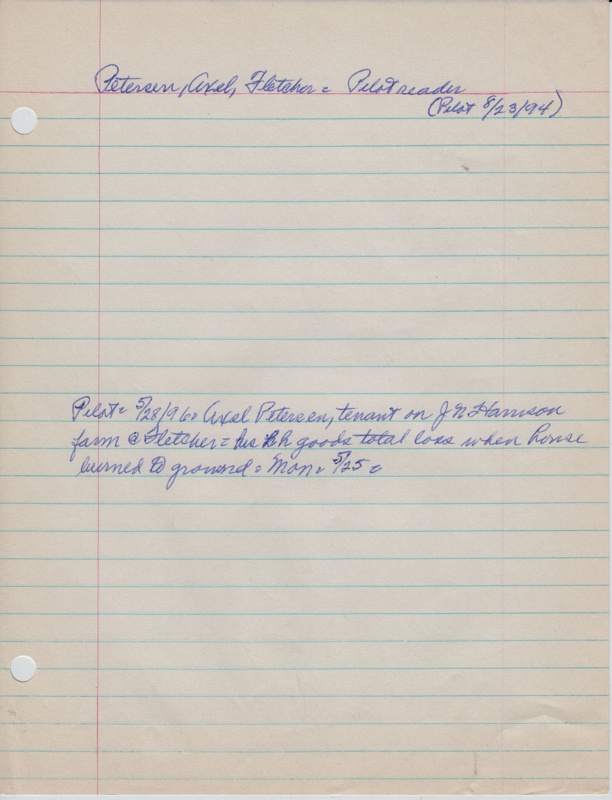 Petersen, Axel, Fletcher = Pilot reader
(Pilot 8/23/94)
Pilot = 5/28/96 = Axel Petersen, tenant on J N Harrison
farm @ Fletcher = his hh goods total loss when house
burned to ground = Mon = 5/25 =